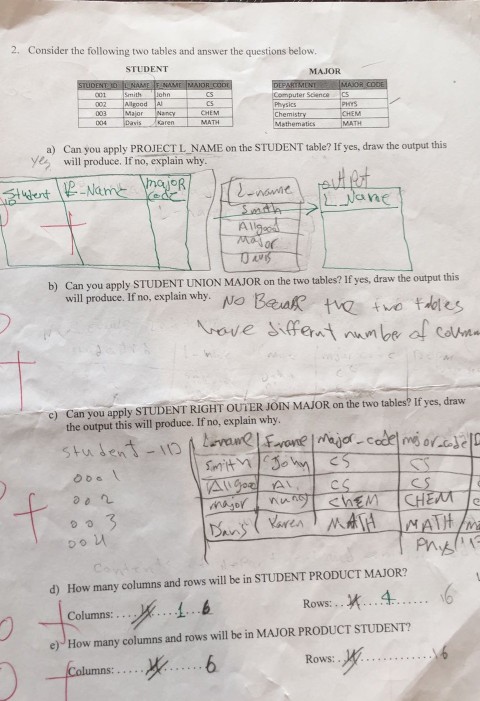 2. Consider the following two tables and answer the questions below.
STUDENT
STUDENT_ID L_NAME F_NAME MAJOR_CODE
001 Smith John CS
002 Allgood Al CS
003 Major Nancy CHEM
004 Davis Karen MATH
MAJOR
DEPARTMENT MAJOR_CODE
Computer Science CS
Physics PHYS
Chemistry CHEM
Mathematics MATH
a) Can you apply PROJECT L_NAME on the STUDENT table? If yes, draw the output this
yes will produce. If no, explain why.
Student ID L-Name major code
L-name
Smith
Allgood
Major
Davis
output
L_Name
b) Can you apply STUDENT UNION MAJOR on the two tables? If yes, draw the output this
will produce. If no, explain why. No Because the two tables
have different number of column
c) Can you apply STUDENT RIGHT OUTER JOIN MAJOR on the two tables? If yes, draw
the output this will produce. If no, explain why.
Student-ID L-name F-name major-code major-code D
0001 Smith John CS CS
002 Allgood Al CS CS
003 major nuncy CHEM CHEM
004 Davis Karen MATH MATH
Phys
d) How many columns and rows will be in STUDENT PRODUCT MAJOR?
Columns: 6 Rows: 4 16
e) How many columns and rows will be in MAJOR PRODUCT STUDENT?
Columns: 6 Rows: 16